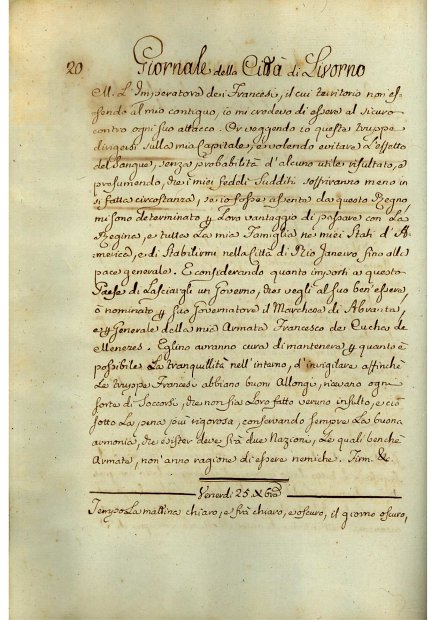 20 Giornale della Città di Livorno
M. L'Imperatore dei Francesi, il cui territorio non es-
sendo al mio contiguo, io mi credevo di essere al sicuro
contro ogni suo attacco. Or veggendo io queste truppe
dirigersi sulla mia Capitale, e volendo evitare l'effetto
del Sangue, senza probabilità d'alcuno utile risultato, e
presumendo, che i miei fedeli Sudditi soffriranno meno in
sì fatta circostanza, se io fosse assente da questo Regno,
mi sono determinato p loro vantaggio di passare con La
Regina, e tutta La mia Famiglia ne miei Stati d'A-
merica, e di Stabilirmi nella Città di Rio Janeiro fino alla
pace generale. E considerando quanto importi a questo
Paese di Lasciargli un Governo, che vegli al suo ben'essere,
ò nominato p suo Governatore il Marchese di Abrante,
e p Generale della mia Armata Francesco da Cucha de
Menezes. Eglino avranno cura di mantenere p quanto è
possibile La tranquillità nell'interno, d'invigilare affinchè
Le truppe Francesi abbiano buon Allogio, ricevano ogni
sorte di Soccorsi, che non sia Loro fatto veruno insulto, e ciò
sotto La pena più rigorosa, conservando sempre La buona
armonia, che esister deve frà due Nazioni, Le quali benchè
Armate, non'anno ragione di essere nemiche. Firm. &
Venerdi 25. Xbre
Tempo La mattina chiaro, e frà chiaro, e oscuro, il giorno oscuro,